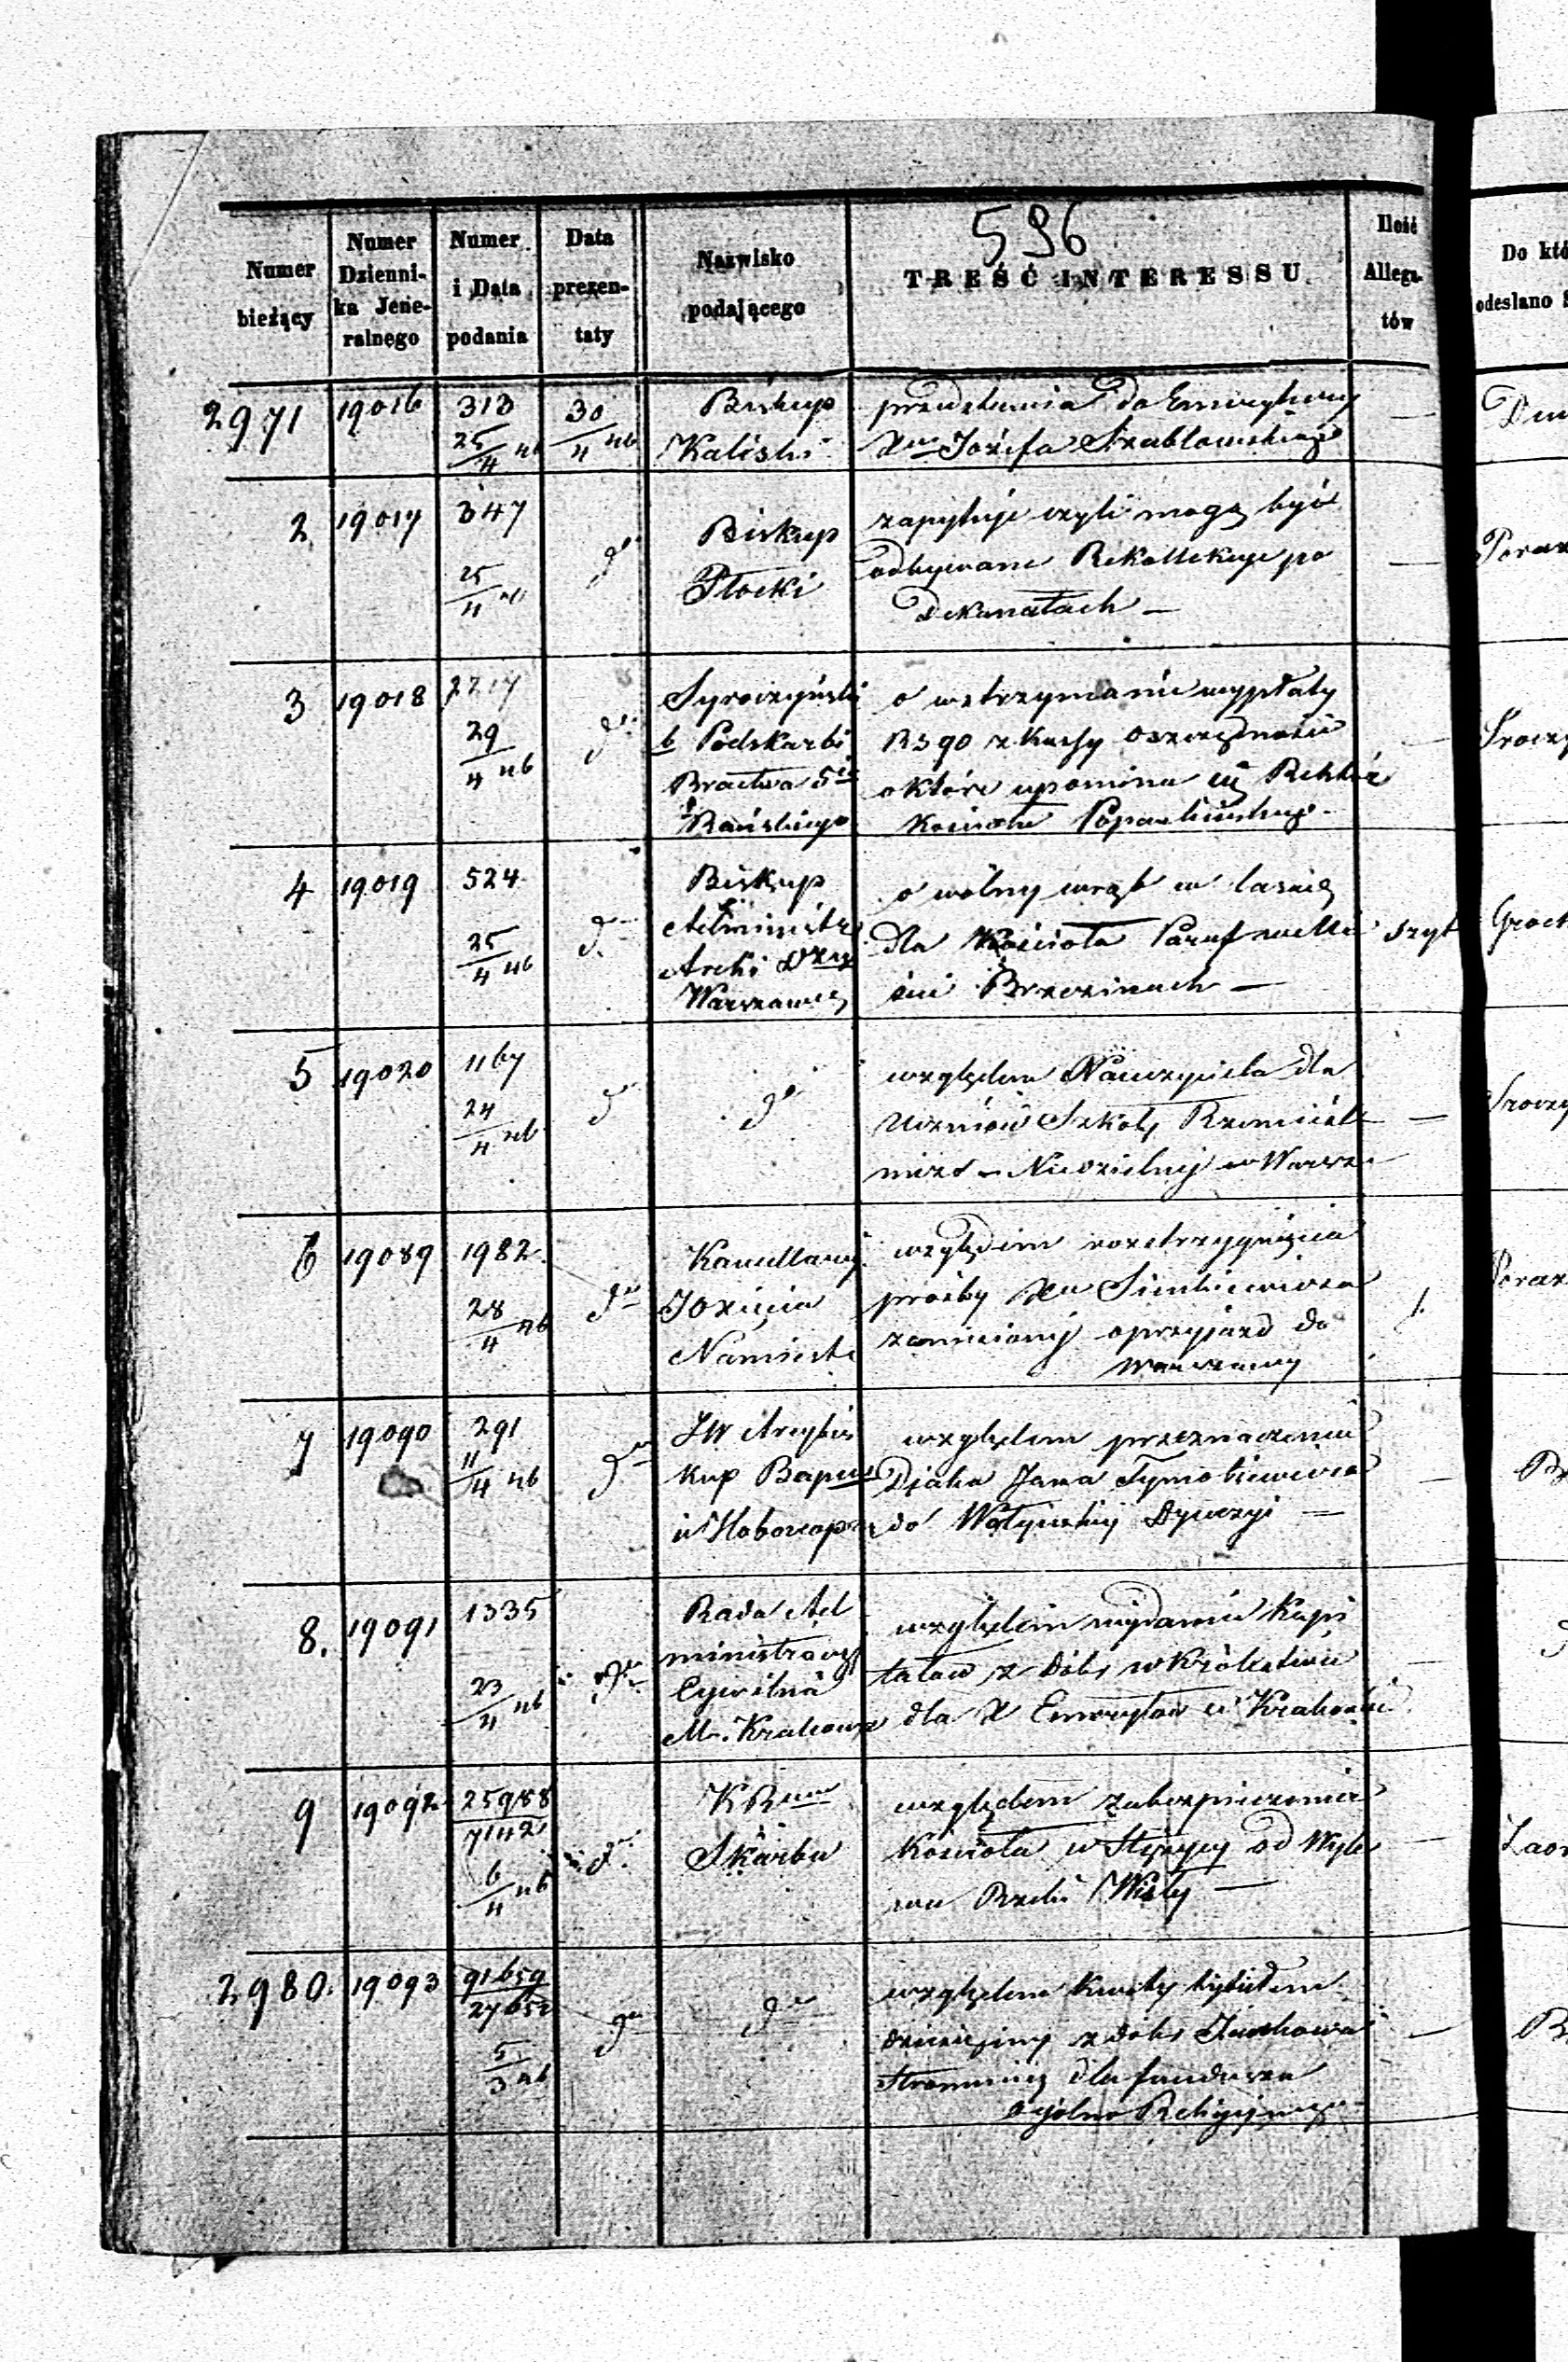 596
Numer bieżący
Numer Dzienni- ka Jene- ralnego
Numer i Data podania
Data prezen- taty
Nazwisko podającego
TREŚĆ INTERESSU.
Ilość Allega- tów
Do któ
odesłano
2971 19016 313 25/4 46 30/4 46
Biskup
Kaliski
przedstawia do Emerytury
Xa Józefa Szabłowskiego
—
2 19017 347 25/4 46 do
Biskup
Płocki
zapytuje czyli mogą być
odbywane Rekollekcye po
Dekanatach —
—
3 19018 29/4 46 do
b Podskarbi
Bractwa 5ciu
Rańskiego
o wstrzymanie wypłaty
Rs 90 z Kassy Oszczędności
o które upomina się Rektór
Kościoła
4 19019 524 25/4 46 do
Biskup
Administr
Archi Dyec
Warszawsk
o wolny wrąb w lasach
dla Kościoła Paraf
Brzezinach —
szyt
5 19020 1167 24/4 46 do
do
względem Nauczyciela dla
Uczniów Szkoły Rzemieśl
niczo – Niedzielnej w Warsz
—
6 19089 1982 28/4 46 do
Kancellarya
JO Xięcia
Namiest
względem rozstrzygnięcia
prośby Xa Sienkiewicza
zaniesionej o przyjazd do
Warszawy
1.
7 19090 291 11/4 46 do
JW Arcybis
kup
względem przeznaczenia
Djaka Jana Tymotiewicza
do Wołyńskiej Dyecezyi —
—
8. 19091 1335 23/4 46 do
Rada Ad
ministracyj
Cywilna
M. Krakowa
względem wydania Kapi
tałów z Dóbr w Królestwie
dla X Emerytów w Krakowie
—
9 19092 25988/7142 6/4 46 do
K R
Skarbu
względem zabezpieczenia
Kościoła w Stężycy od Wyle
wu Rzeki Wisły —
—
2980. 19093 91659/27652 5/3 46 do
do
względem Kwoty tytułem
dziesięciny z dóbr
dla funduszu
ogólno Religijnego
—